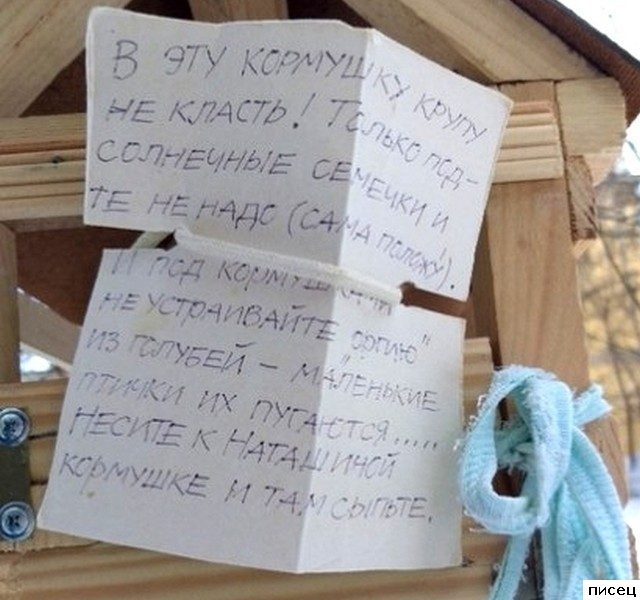 В ЭТУ КОРМУШКУ КРУПУ
НЕ КЛАСТЬ! ТОЛЬКО ПОД-
СОЛНЕЧНЫЕ СЕМЕЧКИ И
ТЕ НЕ НАДО (САМА ПОЛОЖУ).
И ПОД КОРМУШКАМИ
НЕ УСТРАИВАЙТЕ "ОРГИЮ"
ИЗ ГОЛУБЕЙ – МАЛЕНЬКИЕ
ПТИЧКИ ИХ ПУГАЮТСЯ.....
НЕСИТЕ К НАТАШИНОЙ
КОРМУШКЕ И ТАМ СЫПЬТЕ.
писец